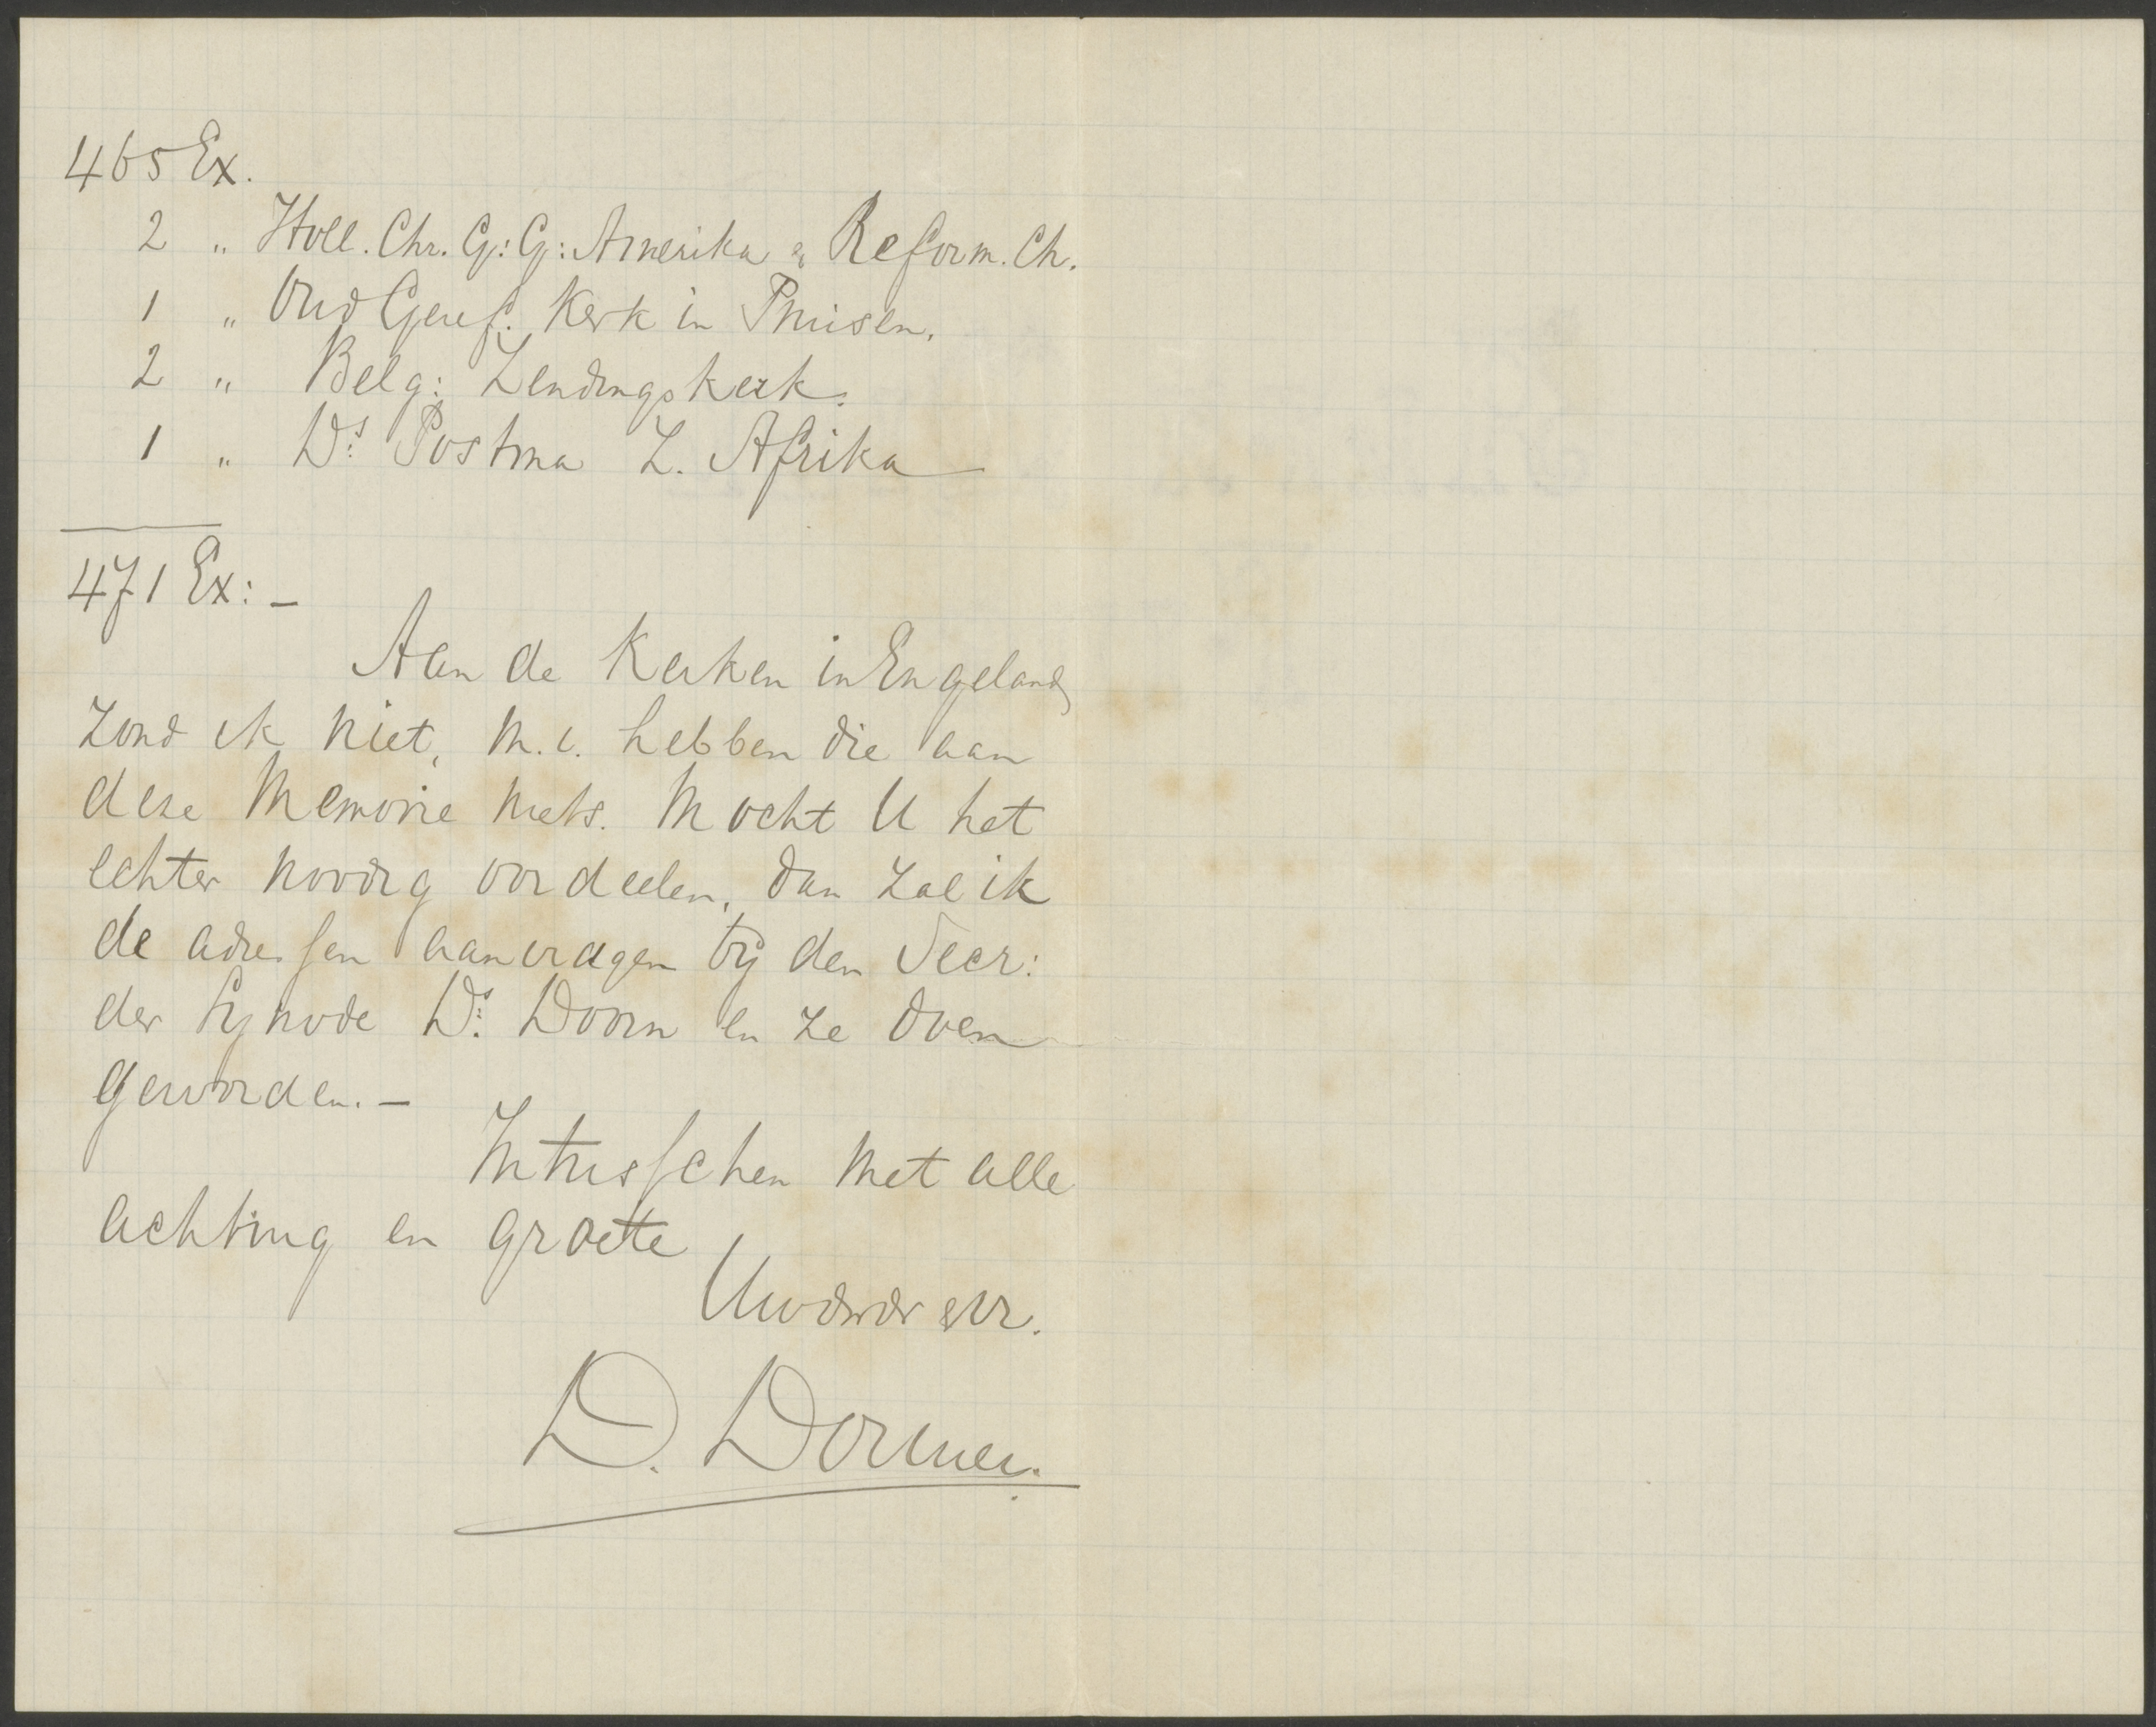 465 Ex.
2 " Holl. Chr. G: G: Amerika & Reform. Ch.
1 " Oud Geref. Kerk in Pruisen.
2 " Belg: Zendingskerk.
1 " Ds. Postma Z. Afrika
471 Ex: -
Aan de Kerken in Engeland
zond ik niet, m.i. hebben die aan
deze Memorie niets. Mocht U het
echter noodig oordeelen, dan zal ik
de adressen aanvragen bij den Secr:
der Synode Ds. Doorn en ze doen
geworden. -
Intusschen met alle
achting en groete
Uw dw dr en br.
D. Dormer.